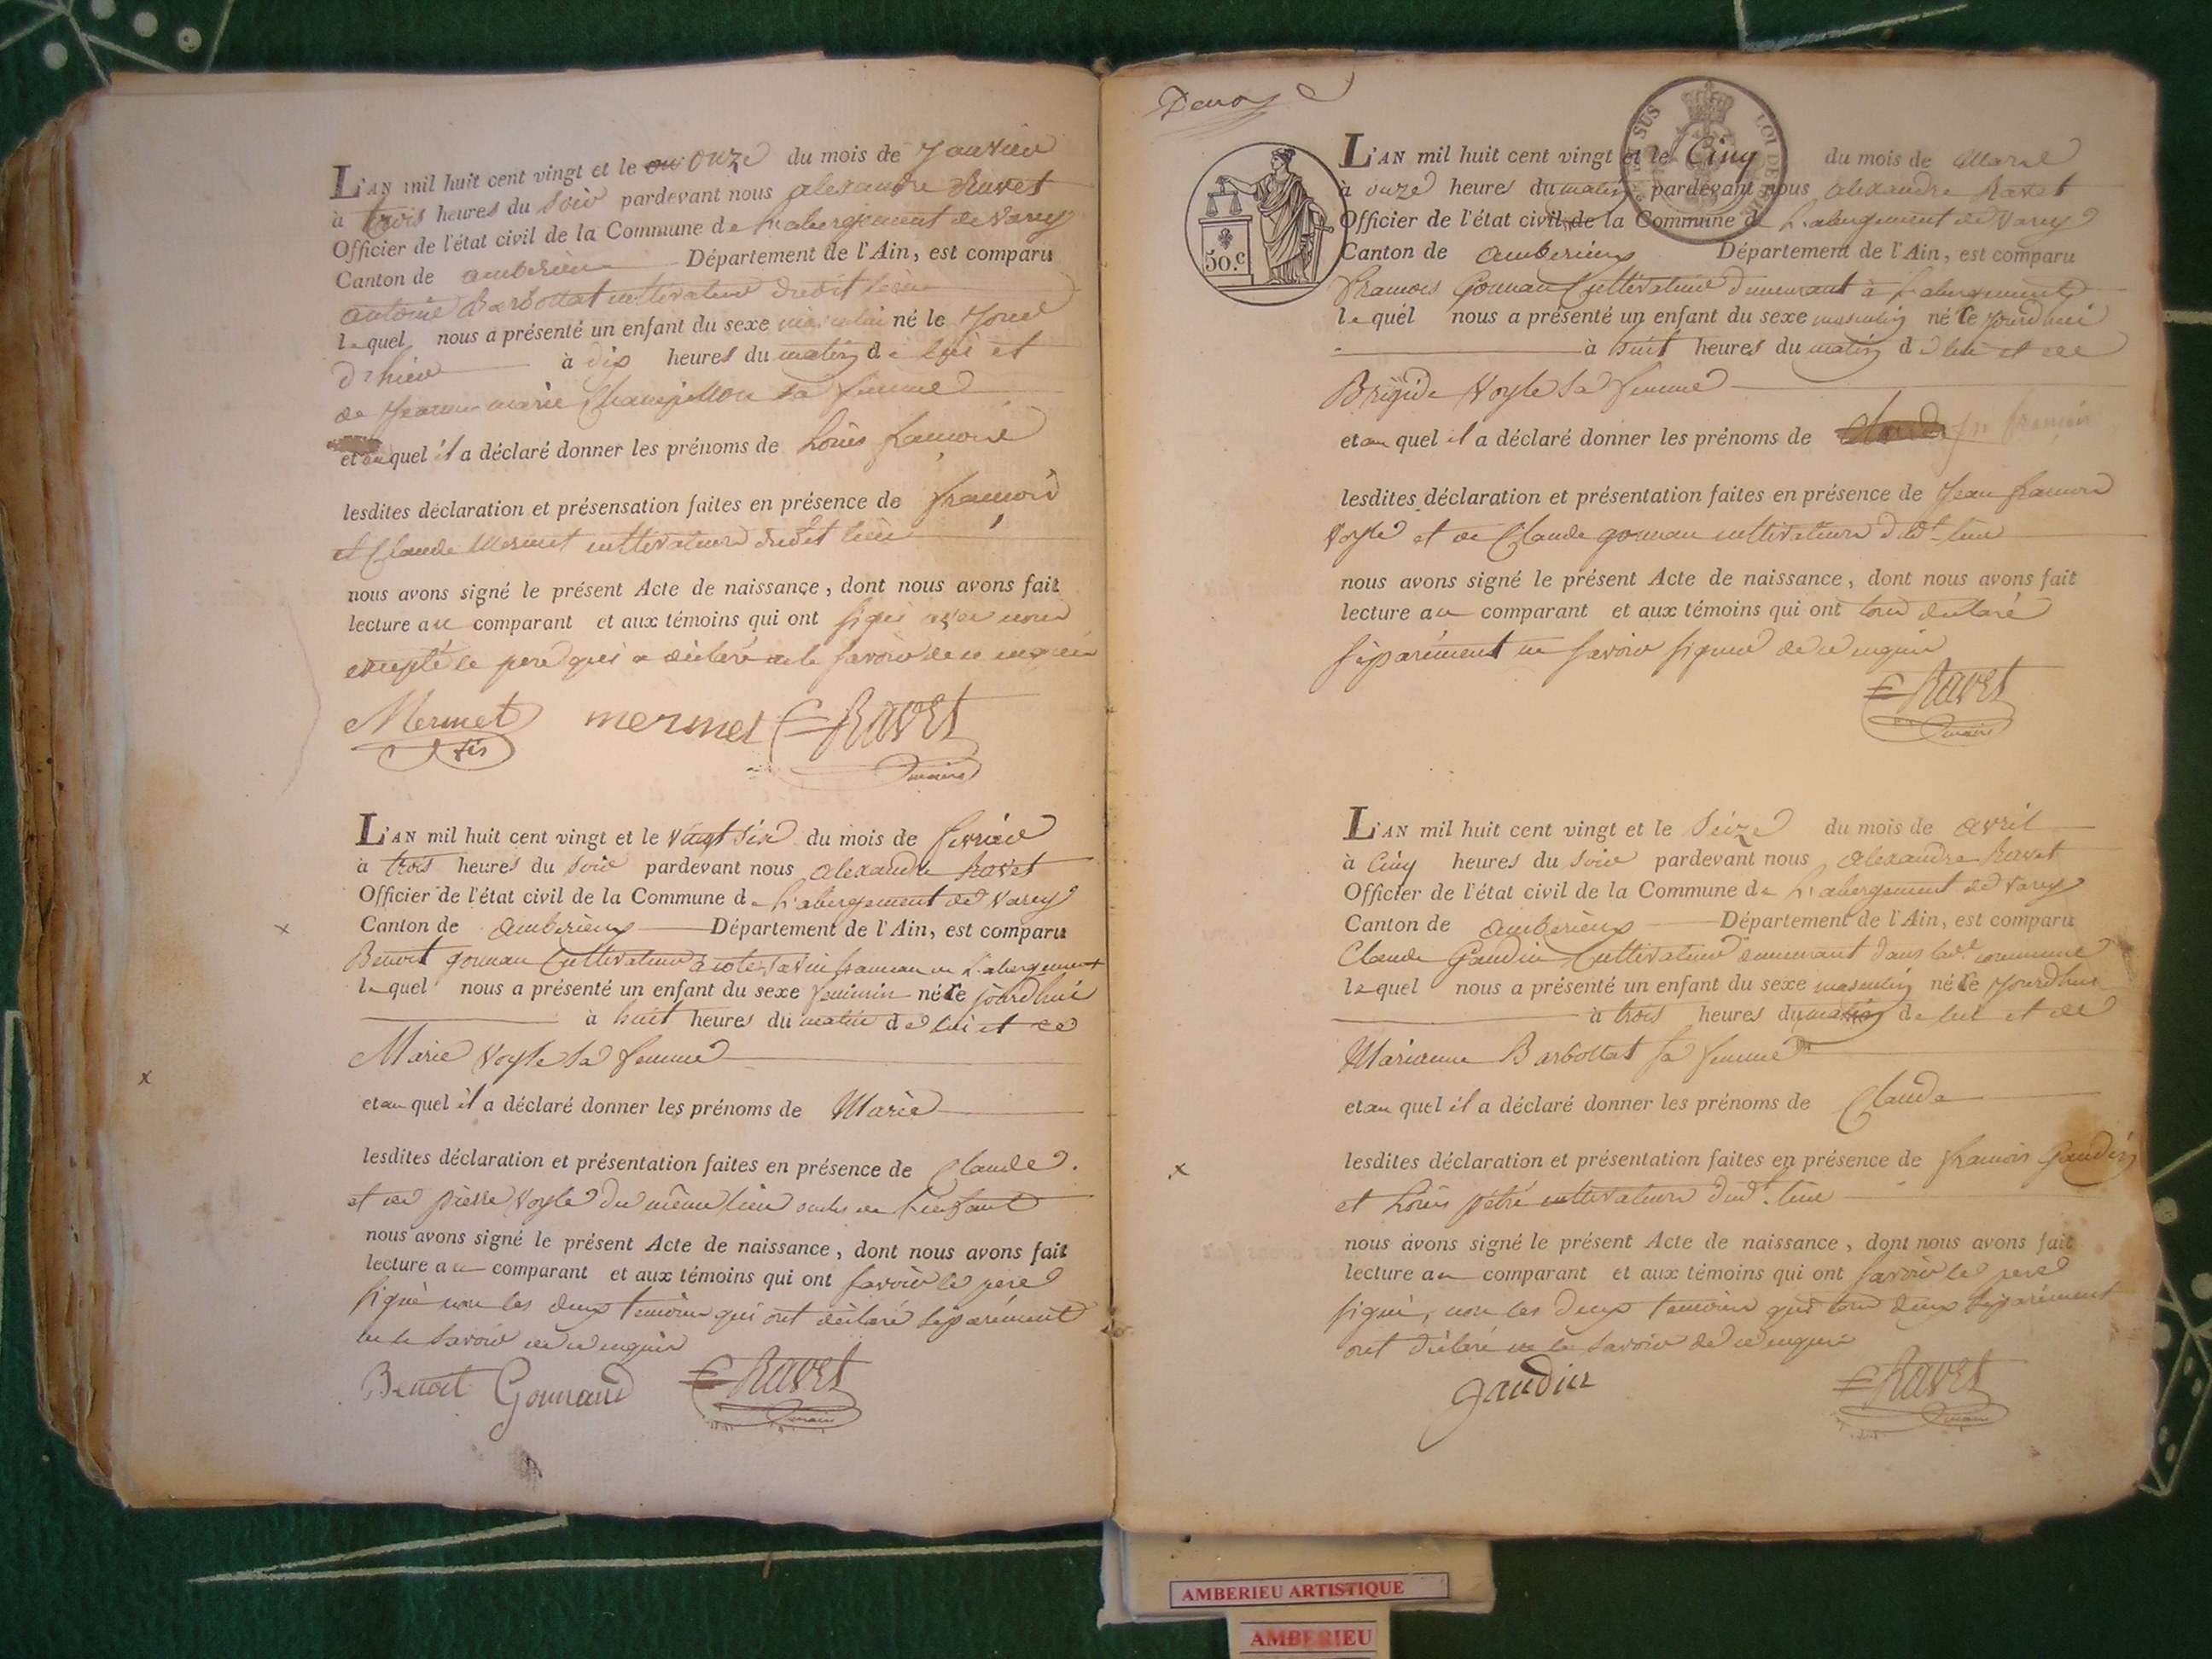 L'AN mil huit cent vingt et le onze du mois de Janvier
à trois heures du soir pardevant nous alexandre Ravet
Officier de l'état civil de la Commune de L'abergement de Varey
Canton de amberieux Département de l'Ain, est comparu
antoine Barbottat cultivateur dudit lieu
lequel nous a présenté un enfant du sexe masculin né le Jour
d'hier à dix heures du matin de lui et
de Jeanne marie sa femme
et auquel il a déclaré donner les prénoms de Louis françois
lesdites déclaration et présensation faites en présence de françois
et Claude Mermet cultivateurs dudit lieu
nous avons signé le présent Acte de naissance, dont nous avons fait
lecture au comparant et aux témoins qui ont signé avec nous
excepté le pere qui a déclaré ne le savoir de ce enquis
Mermet fils mermet Ravet
maire
L'AN mil huit cent vingt et le vingt six du mois de fevrier
à trois heures du soir pardevant nous alexandre Ravet
Officier de l'état civil de la Commune de L'abergement de Varey
Canton de amberieux Département de l'Ain, est comparu
Benoit gounan Cultivateur L'abergement
lequel nous a présenté un enfant du sexe feminin né ce jourd'hui
à huit heures du matin de lui et de
Marie Voyle sa femme
et au quel il a déclaré donner les prénoms de Marie
lesdites déclaration et présentation faites en présence de Claude
et de pierre Voyle du même lieu oncles de l'enfant
nous avons signé le présent Acte de naissance, dont nous avons fait
lecture au comparant et aux témoins qui ont savoir le pere
signé non les deux temoins qui ont déclaré séparément
ne le savoir de ce enquis
Benoit Gounand Ravet
maire
L'AN mil huit cent vingt et le Cinq du mois de Mars
à onze heures du matin pardevant nous alexandre Ravet
Officier de l'état civil de la Commune de L'abergement de Varey
50.c
Canton de amberieux Département de l'Ain, est comparu
francois Gounan Cultivateur demeurant à L'abergement
lequel nous a présenté un enfant du sexe masculin né ce jourd'hui
à huit heures du matin de lui et de
Brigide Voyle sa femme
et au quel il a déclaré donner les prénoms de Jn francois
lesdites déclaration et présentation faites en présence de Jean francois
Voyle et de Claude gounan cultivateurs dudt lieu
nous avons signé le présent Acte de naissance, dont nous avons fait
lecture au comparant et aux témoins qui ont tous declaré
séparément ne savoir signer de ce enquis
Ravet
maire
L'AN mil huit cent vingt et le Seize du mois de avril
à Cinq heures du soir pardevant nous alexandre Ravet
Officier de l'état civil de la Commune de L'abergement de Varey
Canton de amberieux Département de l'Ain, est comparu
Claude Gaudin Cultivateur demeurant dans ladte commune
lequel nous a présenté un enfant du sexe masculin né ce jourd'hui
à trois heures du matin de lui et de
Marianne Barbottat sa femme
et au quel il a déclaré donner les prénoms de Claude
lesdites déclaration et présentation faites en présence de francois Gaudin
et Louis pétré cultivateurs dudt lieu
nous avons signé le présent Acte de naissance, dont nous avons fait
lecture au comparant et aux témoins qui ont savoir le pere
signé, non les deux temoins qui tous deux séparément
ont déclaré ne le savoir de ce enquis
gaudin Ravet
maire
AMBERIEU ARTISTIQUE
AMBERIEU